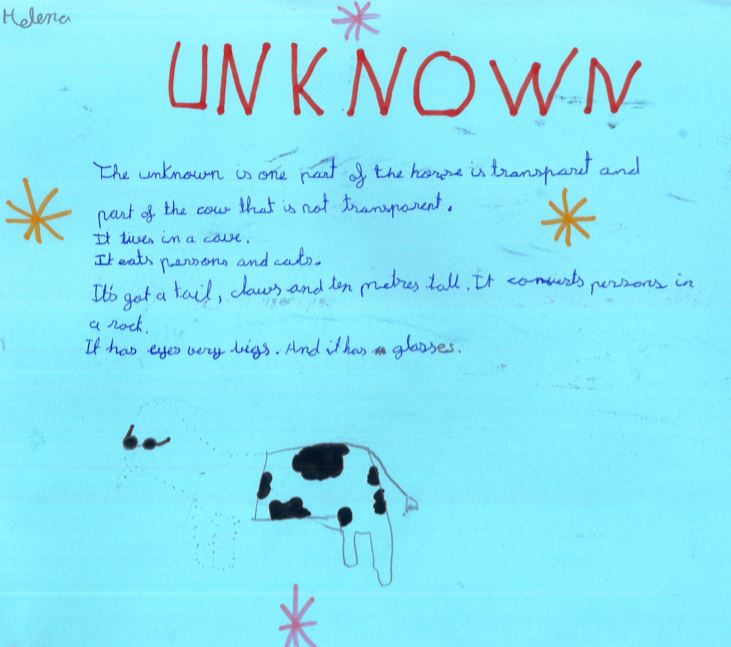 Helena
UNKNOWN
The unknown is one part of the horse is transparet and
part of the cow that is not transparent.
It lives in a cave.
It eats persons and cats.
It's got a tail, claws and ten metres tall. It converts persons in
a rock.
It has eyes very bigs. And it has glasses.